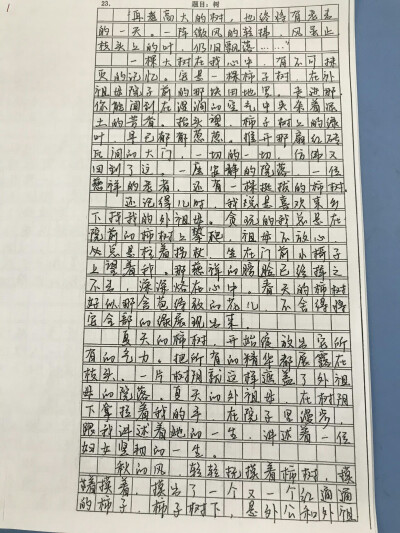 1
23.
题目：树
再卷高大的树，也终将有老去
的一天。一阵微风的轻拂，风景止
枝头上的叶，仍旧飘落……"
一棵大树在我心中，有不可抹
灭的记忆。它是一棵柿子树，在外
祖母院子前的那块田地里。走进那，
你能闻到在湿润的空气中夹杂着泥
土的芳香。抬头望，柿子树上的绿
叶早已郁郁葱葱。推开那扇红砖
瓦间的大门，一切的一切，仿佛又
回到了这，一座安静的院落，一位
慈祥的老者，还有一棵挺拔的柿树
还记得儿时，我总是喜欢来乡
下找我的外祖母。贪玩的我总是在
院前的柿树上攀爬，祖母不放心，
处总是拄着拐杖，坐在门前小椅子
上望着我。那慈祥的脸脸已经挥之
不去，深深烙在心中。春天的柿树
好似那含苞待放的花儿，不舍得将
它全部的绿展现出来。
夏天的柿树，开始绽放出它所
有的气力。把所有的精华都展露在
枝头。一片树阴就这样遮盖了外祖
母的院落。夏天的外祖母，在树阴
下拿拉着我的手，在院子里漫步，
跟我讲述着她的一生，讲述着一位
妇女坚韧的一生。
秋的风，轻轻抚摸着柿树，摸
着摸着，摸出了一个又一个红通通
的柿子。柿子树下，是外公和外祖